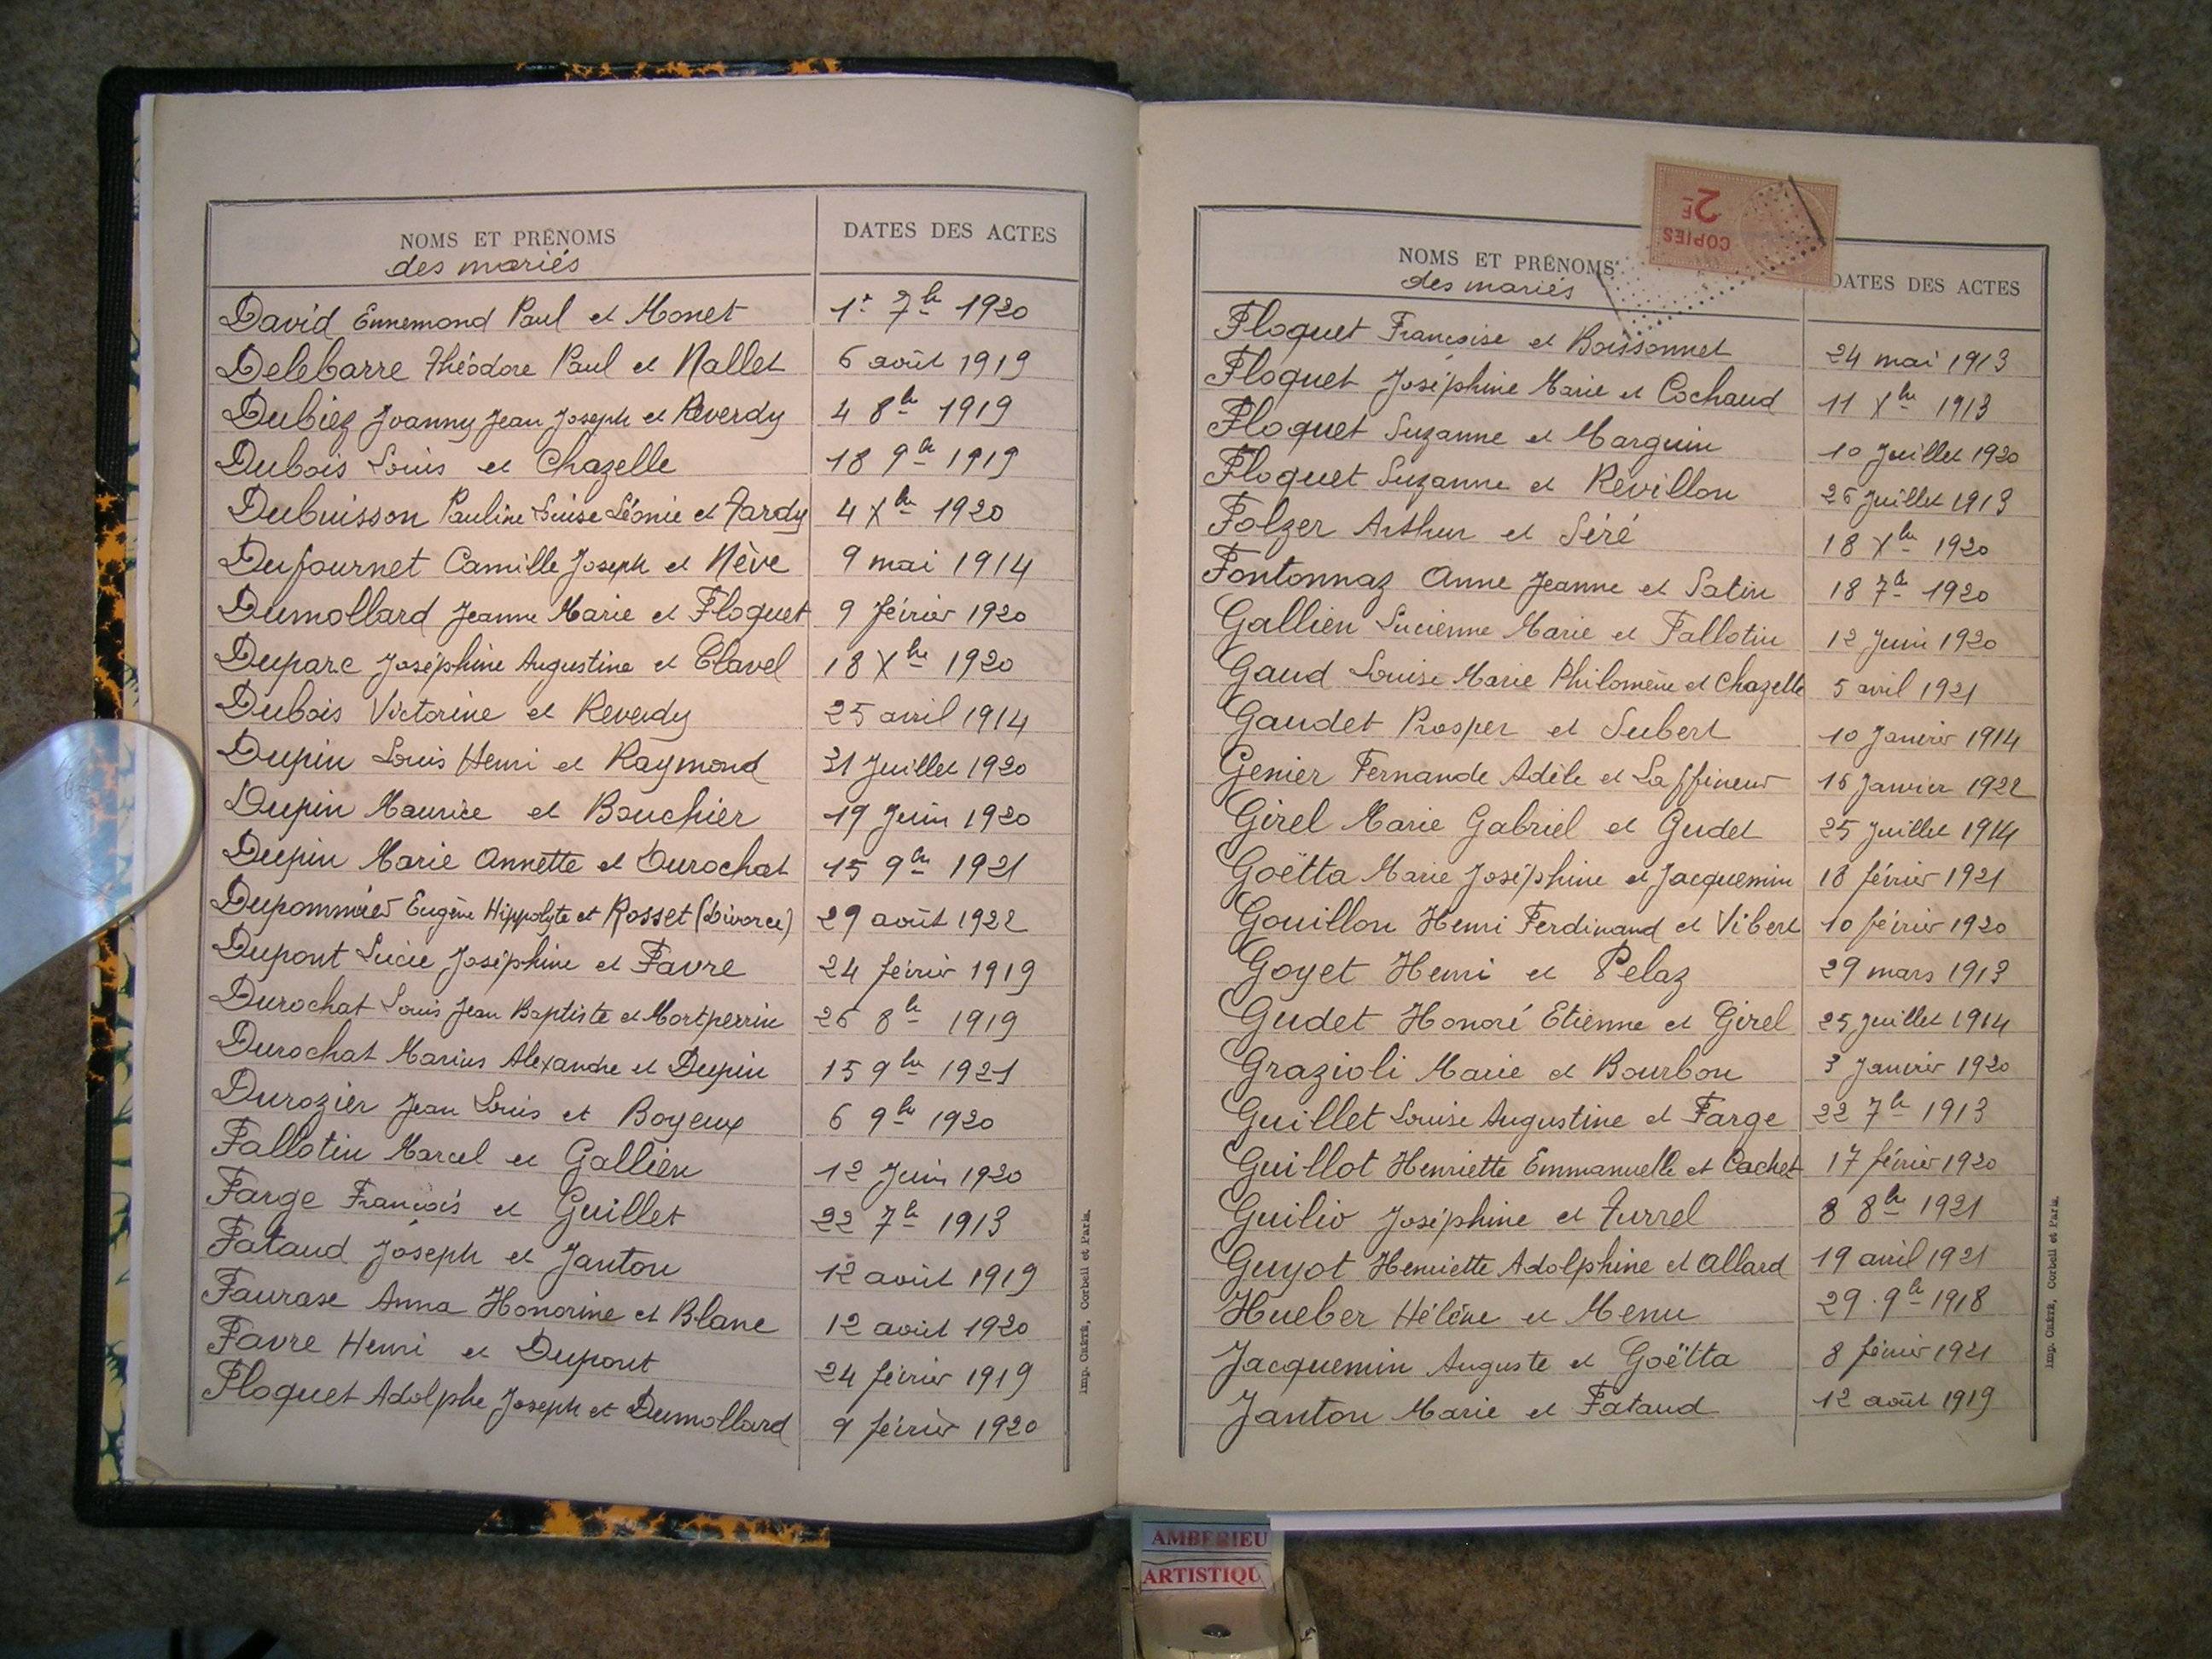 NOMS ET PRÉNOMS DATES DES ACTES
des mariés
David Ennemond Paul et Monet 1er 7bre 1920
Delebarre Théodore Paul et Nallet 6 août 1919
Dubiez Joanny Jean Joseph et Reverdy 4 8bre 1919
Dubois Louis et Chazelle 18 9bre 1919
Dubuisson Pauline Louise Léonie et Tardy 4 Xbre 1920
Dufournet Camille Joseph et Nève 9 mai 1914
Dumollard Jeanne Marie et Floquet 9 février 1920
Duparc Joséphine Augustine et Clavel 18 Xbre 1920
Dubois Victorine et Reverdy 25 avril 1914
Dupin Louis Henri et Raymond 31 Juillet 1920
Dupin Maurice et Bouchier 19 Juin 1920
Dupin Marie Annette et Durochat 15 9bre 1921
Dupommier Eugène Hippolyte et Rosset (Divorce) 29 août 1922
Dupont Lucie Joséphine et Favre 24 février 1919
Durochat Louis Jean Baptiste et Mortperrin 26 8bre 1919
Durochat Marius Alexandre et Dupin 15 9bre 1921
Durozier Jean Louis et Boyeux 6 9bre 1920
Fallotin Marcel et Gallien 12 Juin 1920
Farge François et Guillet 22 7bre 1913
Fataud Joseph et Janton 12 août 1919
Faurase Anna Honorine et Blanc 12 août 1920
Favre Henri et Dupont 24 février 1919
Floquet Adolphe Joseph et Dumollard 9 février 1920
Imp. CRÉTÉ, Corbeil et Paris.
2F
COPIES
NOMS ET PRÉNOMS DATES DES ACTES
des mariés
Floquet Françoise et Boissonnet 24 mai 1913
Floquet Joséphine Marie et Cochaud 11 Xbre 1913
Floquet Suzanne et Marguin 10 Juillet 1920
Floquet Suzanne et Revillon 26 Juillet 1913
Folzer Arthur et Séré 18 Xbre 1920
Fontonnaz Anne Jeanne et Satin 18 7bre 1920
Gallien Lucienne Marie et Fallotin 12 Juin 1920
Gaud Louise Marie Philomène et Chazelle 5 avril 1921
Gaudet Prosper et Subert 10 Janvier 1914
Genier Fernande Adèle et Laffineur 16 Janvier 1922
Girel Marie Gabriel et Gudet 25 Juillet 1914
Goëtta Marie Joséphine et Jacquemin 18 février 1921
Gouillon Henri Ferdinand et Vibert 10 février 1920
Goyet Henri et Pelaz 29 mars 1913
Gudet Honoré Etienne et Girel 25 Juillet 1914
Grazioli Marie et Bourbon 3 Janvier 1920
Guillet Louise Augustine et Farge 22 7bre 1913
Guillot Henriette Emmanuelle et Cachet 17 février 1920
Guilio Joséphine et Turrel 8 8bre 1921
Guyot Henriette Adolphine et Allard 19 avril 1921
Hueber Hélène et Menu 29 9bre 1918
Jacquemin Auguste et Goëtta 8 février 1921
Janton Marie et Fataud 12 août 1919
Imp. CRÉTÉ, Corbeil et Paris.
AMBERIEU
ARTISTIQU